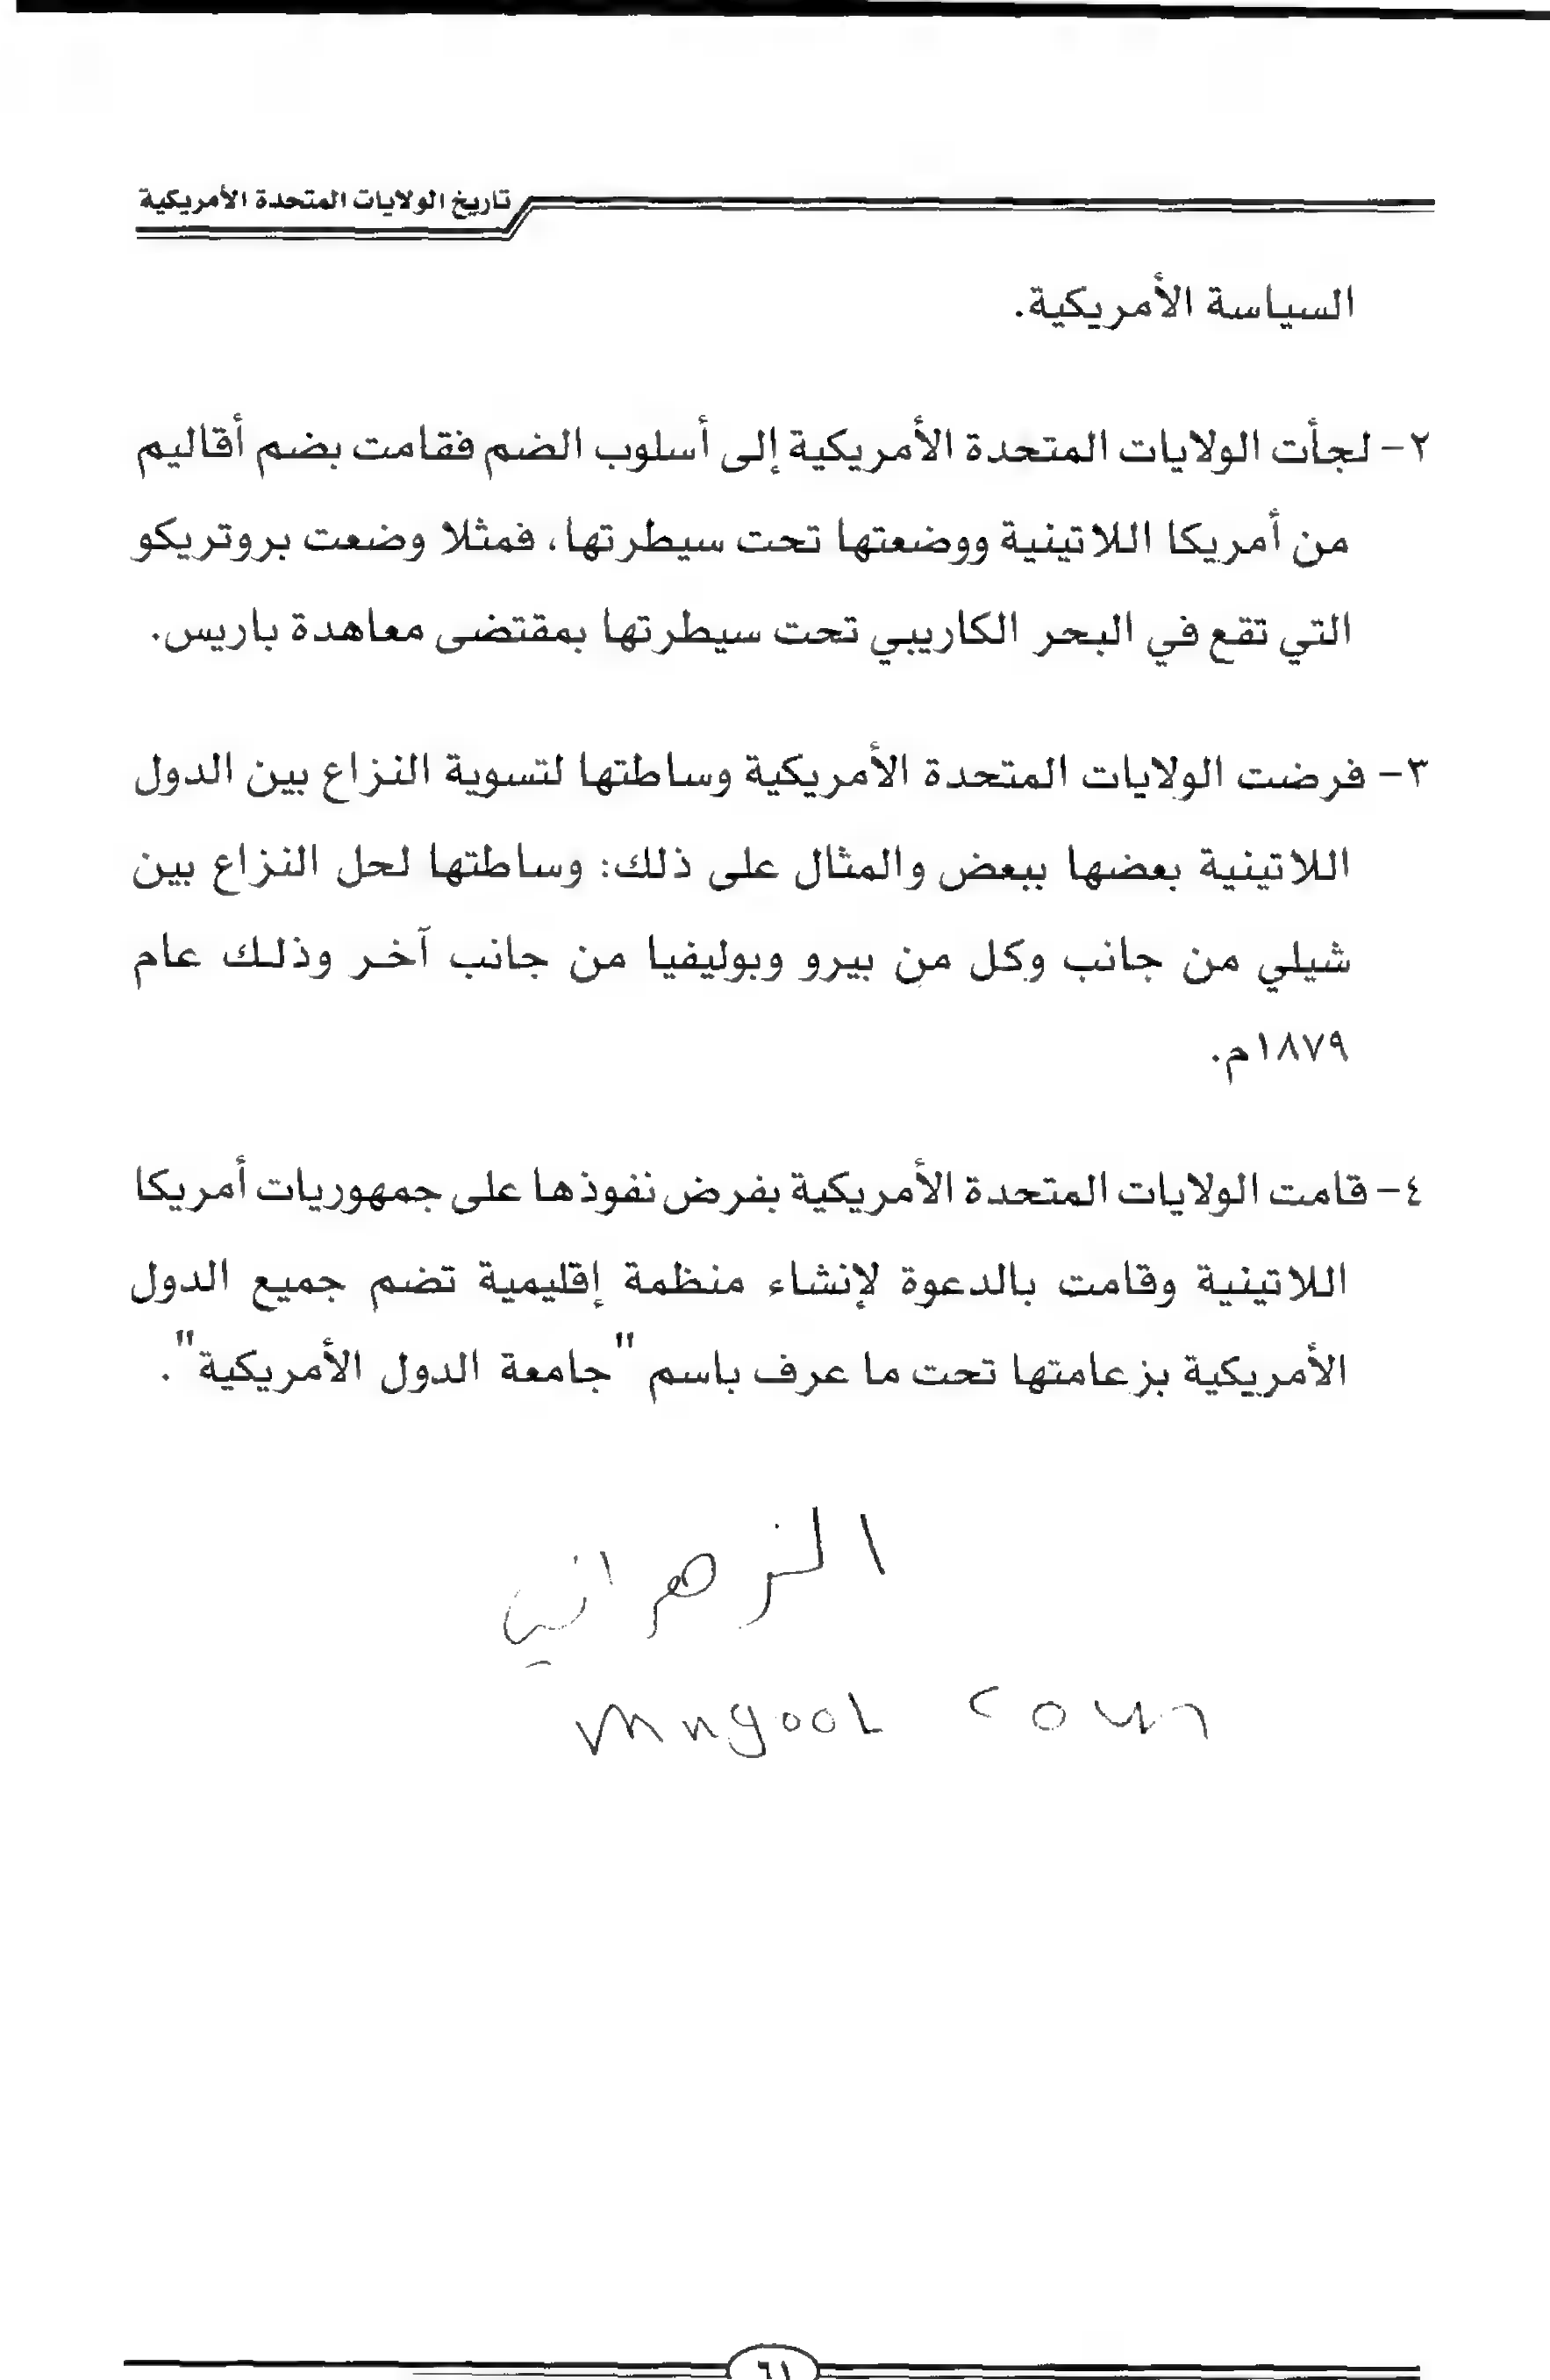 تاريخ الولايات المتحدة الأمريكية
السياسة الأمريكية.
٢- لجأت الولايات المتحدة الأمريكية إلى أسلوب الضم فقامت بضم أقاليم
من أمريكا اللاتينية ووضعتها تحت سيطرتها، فمثلا وضعت بروتريكو
التي تقع في البحر الكاريبي تحت سيطرتها بمقتضى معاهدة باريس.
٣- فرضت الولايات المتحدة الأمريكية وساطتها لتسوية النزاع بين الدول
اللاتينية بعضها ببعض والمثال على ذلك: وساطتها لحل النزاع بين
شيلي من جانب وكل من بيرو وبوليفيا من جانب آخر وذلك عام
١٨٧٩م.
٤- قامت الولايات المتحدة الأمريكية بفرض نفوذها على جمهوريات أمريكا
اللاتينية وقامت بالدعوة لإنشاء منظمة إقليمية تضم جميع الدول
الأمريكية بزعامتها تحت ما عرف باسم "جامعة الدول الأمريكية".
الزهراني
mngool com
٦١